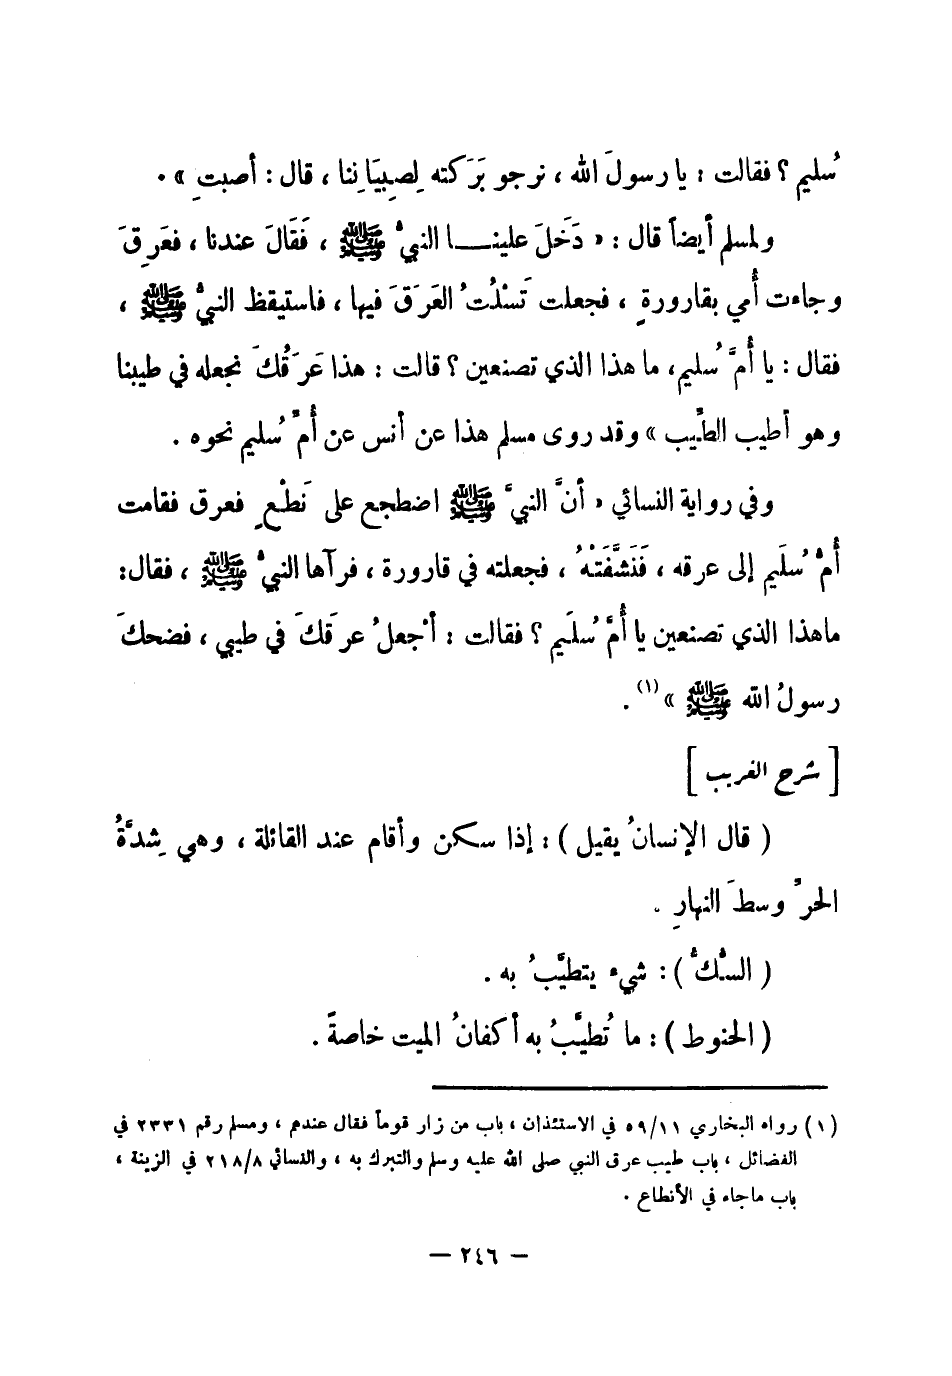 سُليم ؟ فقالت : يا رسولَ الله ، نرجو بَرَكته لِصِبيَانِنا ، قال : أصبتِ » .
ولمسلم أيضاً قال : « دَخَلَ علينـــا النبيُّ ﷺ ، فَقَالَ عندنا ، فعَرِقَ
وجاءت أُمي بقارورةٍ ، فجعلت تَسْلُتُ العَرَقَ فيها ، فاستيقظ النبيُّ ﷺ ،
فقال : يا أُمَّ سُليم، ما هذا الذي تصنعين ؟ قالت : هذا عَرَقُكَ نجعله في طيبنا
وهو أطيب الطِّيب » وقد روى مسلم هذا عن أنس عن أُمِّ سُليم نحوه .
وفي رواية النسائي « أنَّ النبيَّ ﷺ اضطجع على نَطْعٍ فعرق فقامت
أُمُّ سُلَيم إلى عرقه ، فَنَشَّفَتْهُ ، فجعلته في قارورة ، فرآها النبيُّ ﷺ ، فقال:
ماهذا الذي تصنعين يا أُمَّ سُلَيم ؟ فقالت : أجعلُ عرقكَ في طيبي ، فضحكَ
رسولُ الله ﷺ » (١) .
[ شرح الغريب ]
( قال الإنسانُ يقيل ) : إذا سكن وأقام عند القائلة ، وهي شِدَّةُ
الحرِّ وسطَ النهارِ .
( السُّكُّ ) : شيء يتطيَّبُ به .
( الحنوط ) : ما تُطيَّبُ به أكفانُ الميت خاصةً .
(١) رواه البخاري ٥٩/١١ في الاستئذان ، باب من زار قوماً فقال عندهم ، ومسلم رقم ٢٣٣١ في
الفضائل ، باب طيب عرق النبي صلى الله عليه وسلم والتبرك به ، والنسائي ٢١٨/٨ في الزينة ،
باب ماجاء في الأنطاع .
— ٢٤٦ —